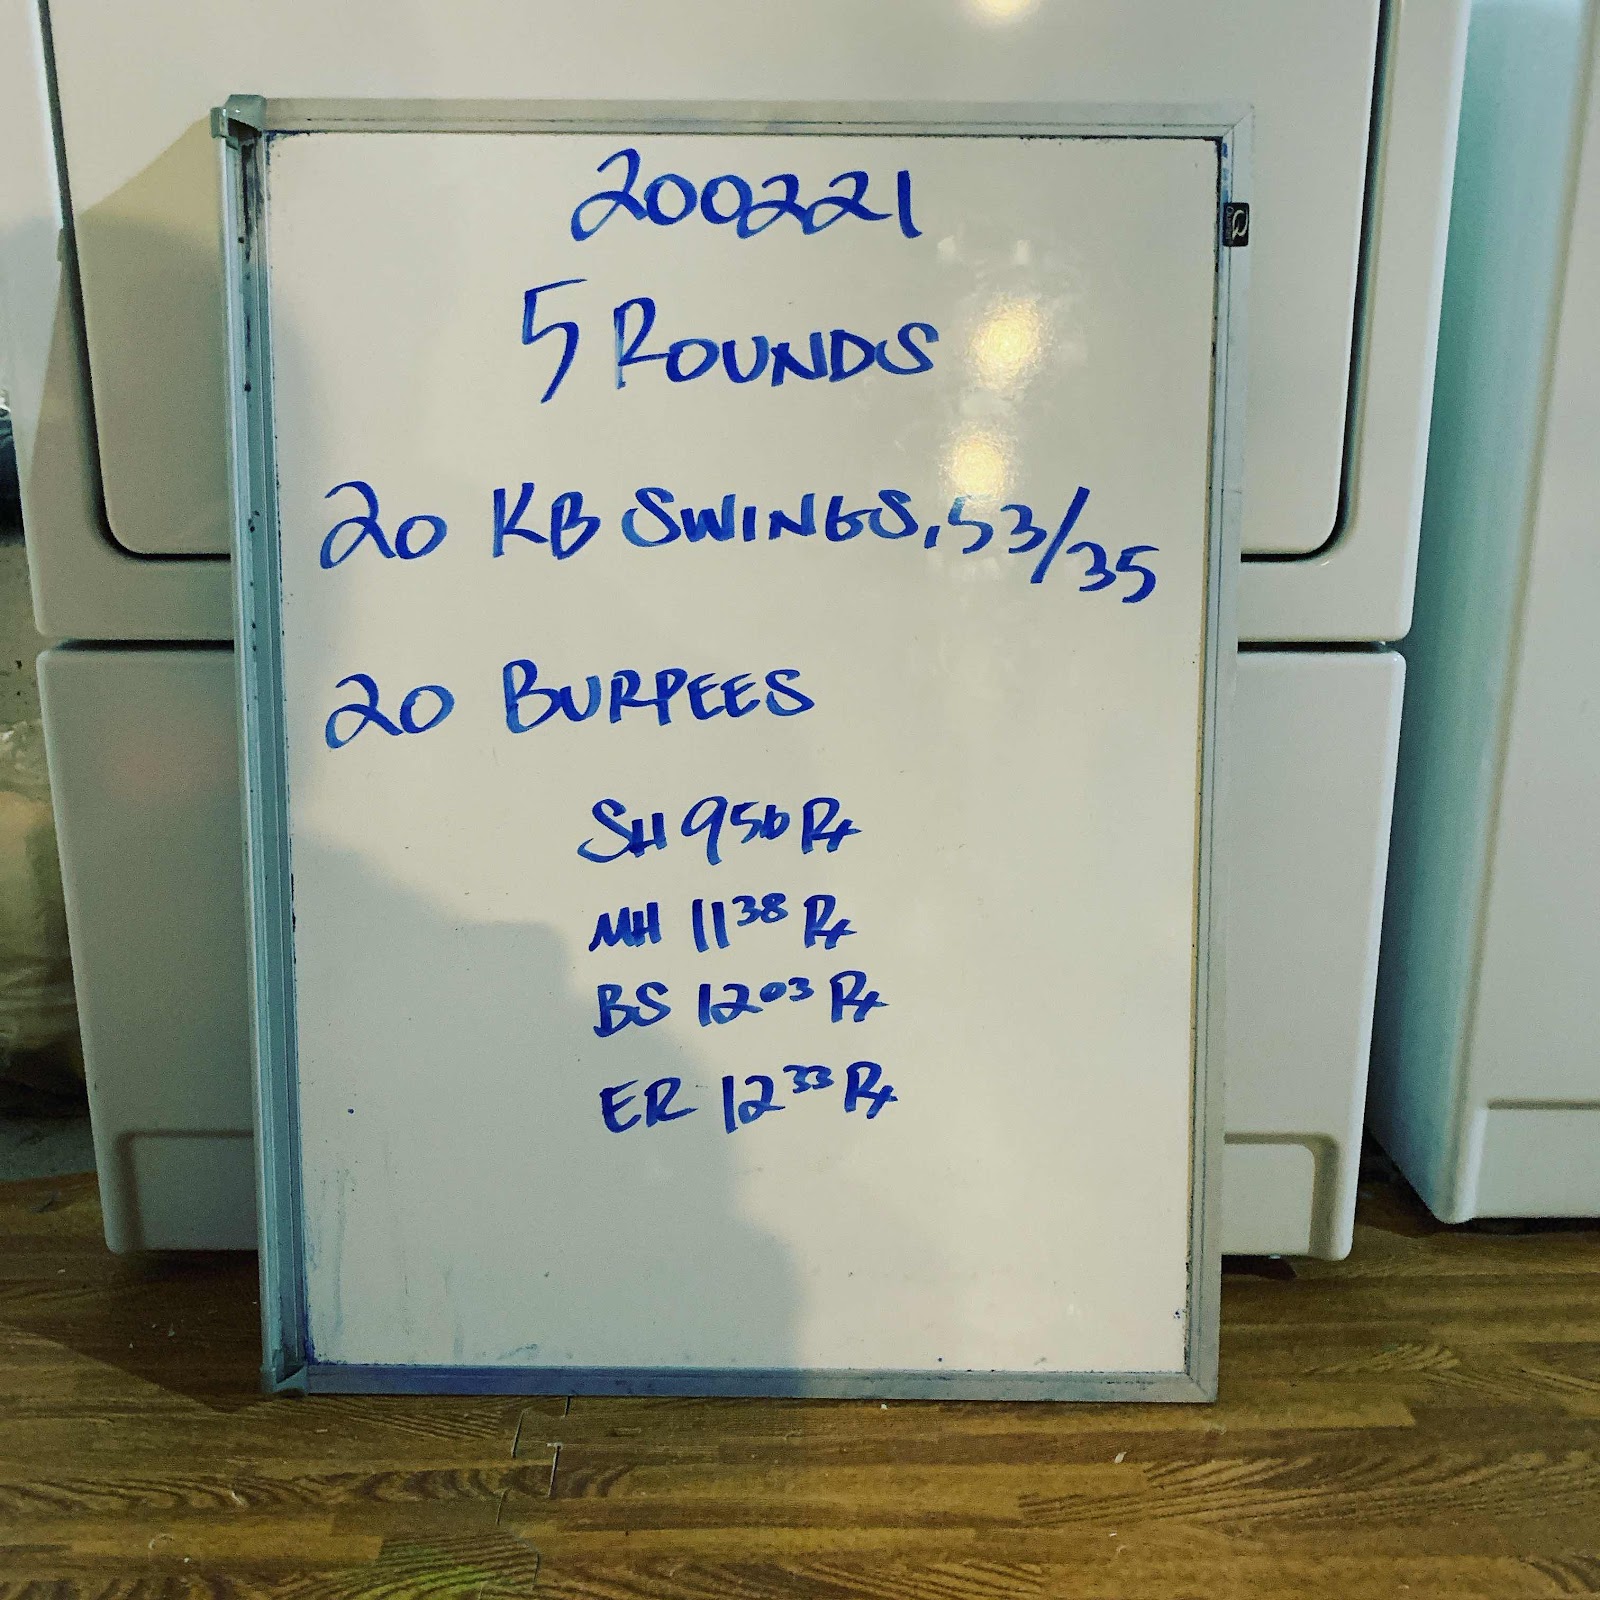 200221
5 ROUNDS
20 KB SWINGS, 53/35
20 BURPEES
SH 956 Rx
MH 1138 Rx
BS 1203 Rx
ER 1233 Rx